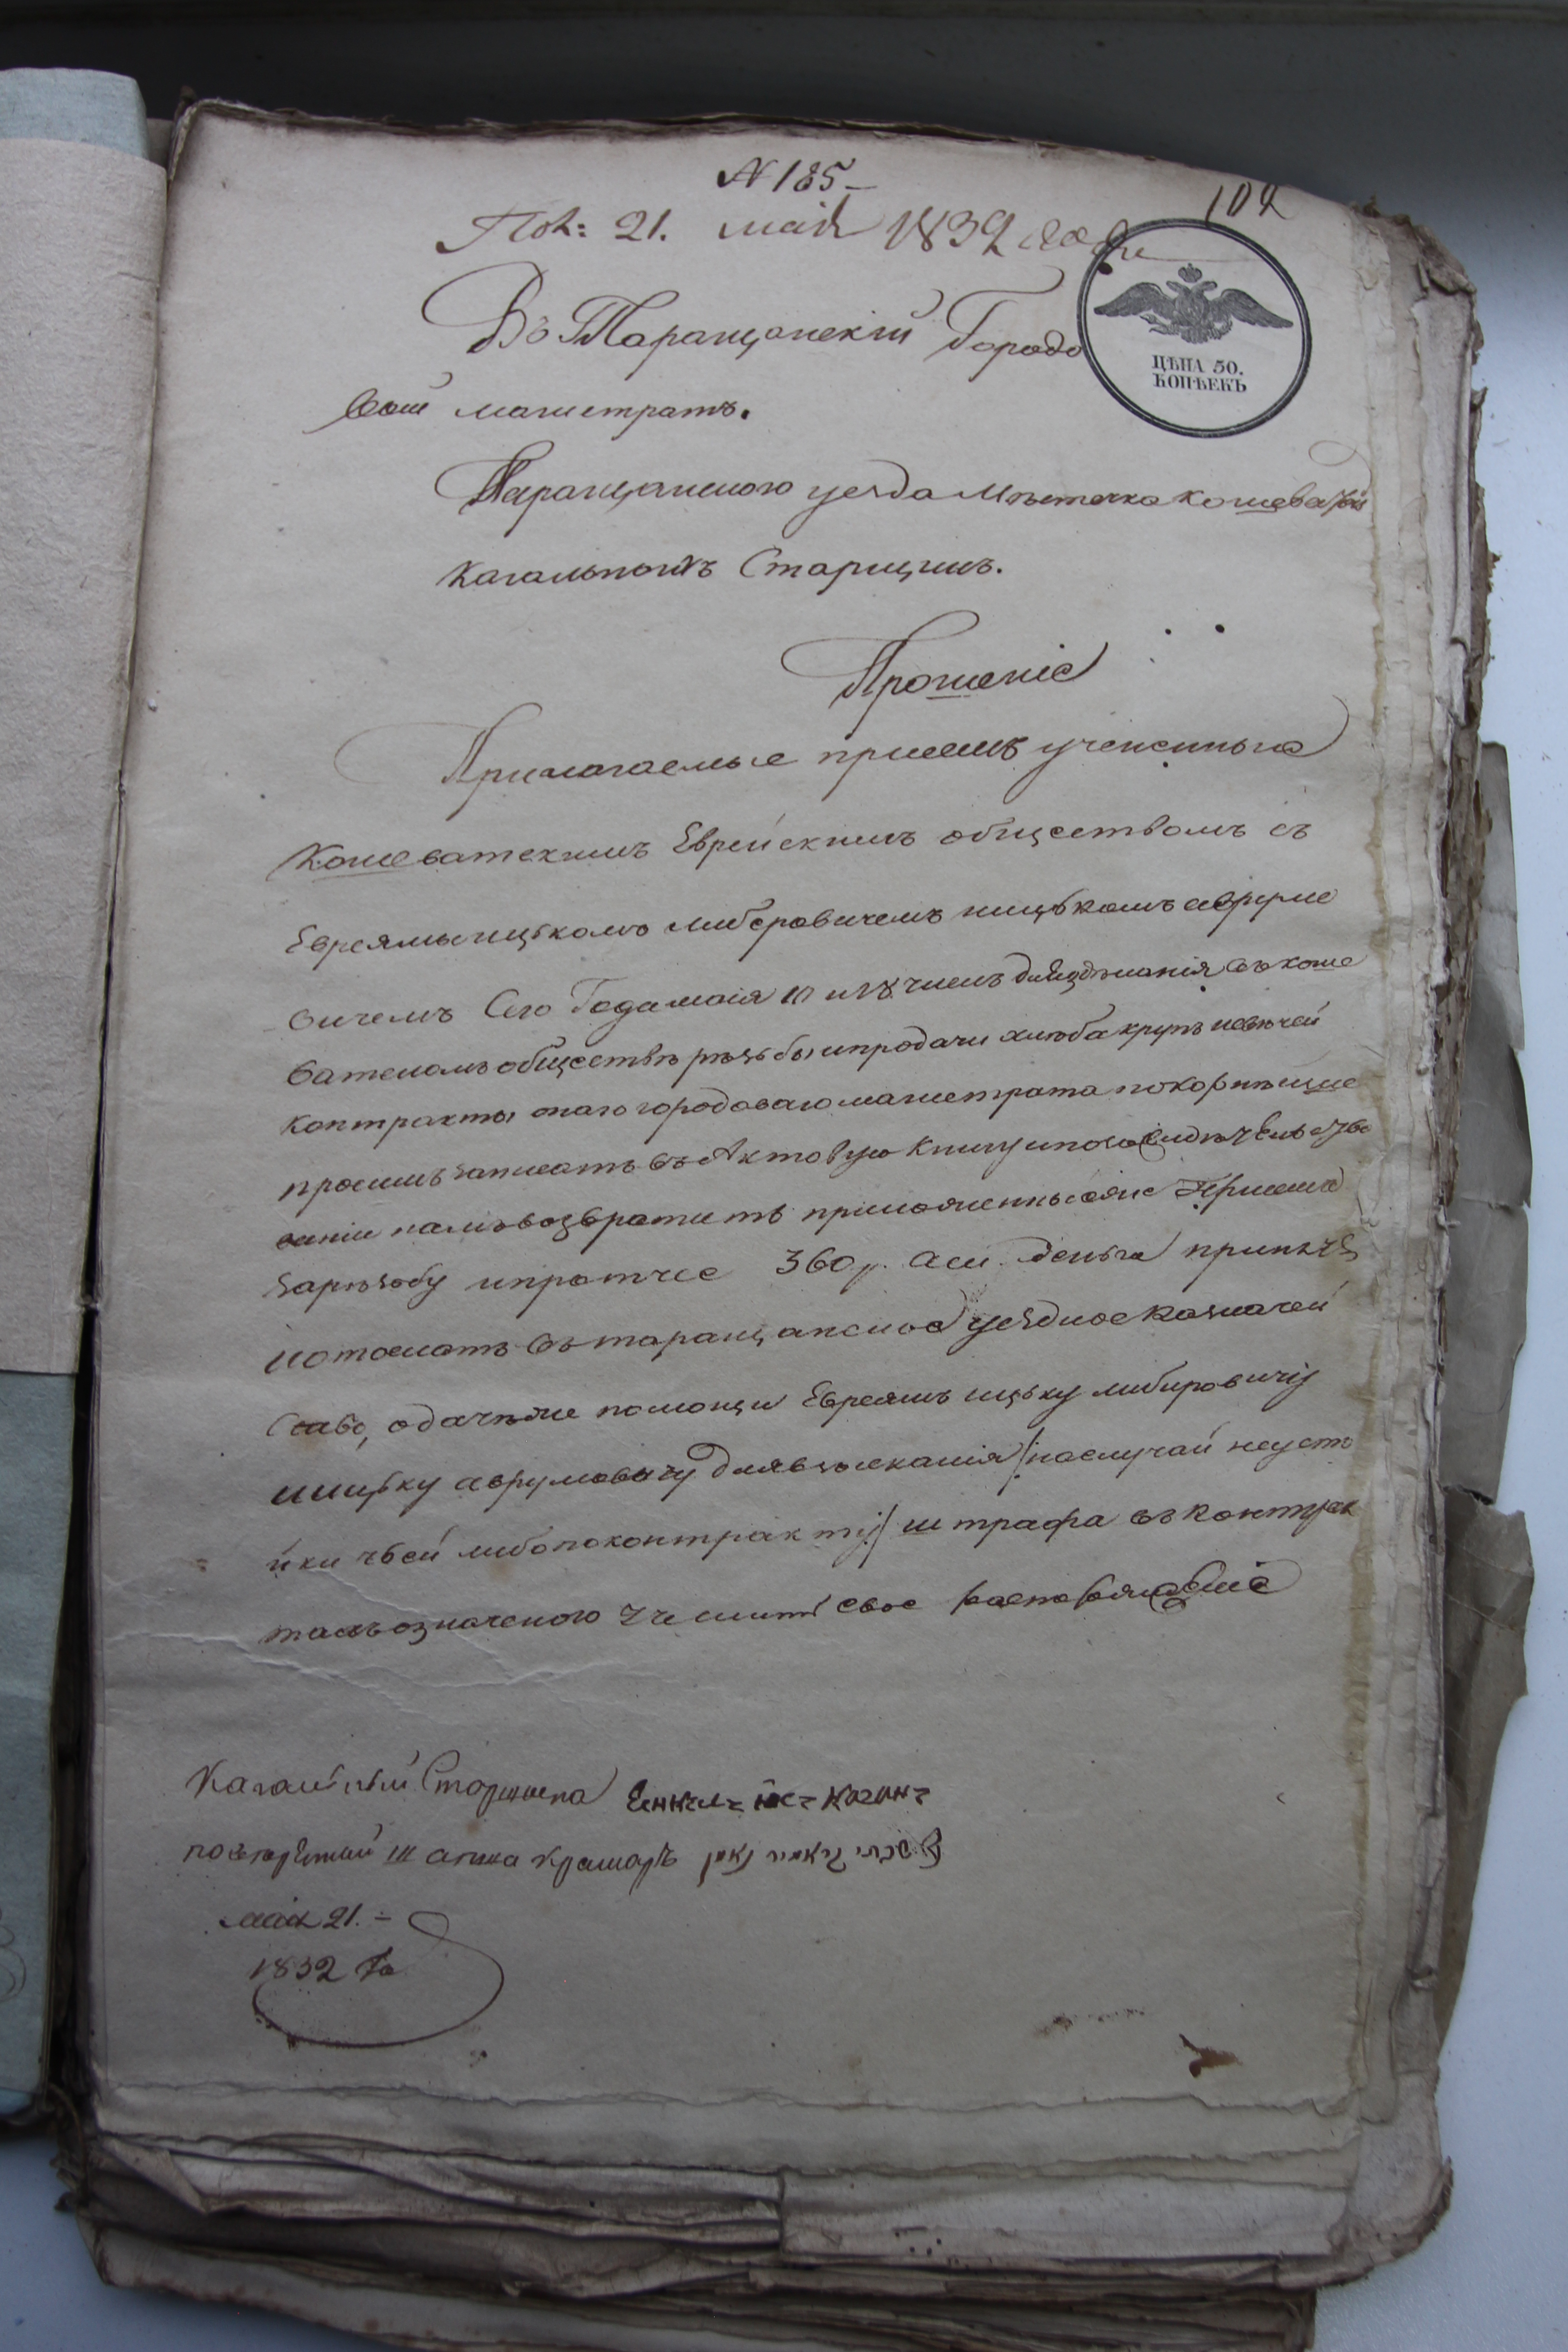 N 185
102
Пол: 21. маія 1832 года
ЦѢНА 50.
КОПѢЕКЪ
Въ Таращанскій Городо
вый магистратъ.
Таращанского уезда Мѣстечка Кошеватой
Кагальныхъ Старшинъ.
Прошеніе
Прилагаемые присемъ учененные
Кошеватскимъ Еврейскимъ обществомъ съ
Евреямы ицькомъ либеровичемъ ицькомъ авруме
вичемъ Сего Года маія
ватскомъ обществѣ рѣзьбы ипродачи хлѣба крупъ
контракты онаго городоваго магистрата покорнѣйше
просимъ записать въ Актовую Книгу ипо
ваніи намъвозвратить приложенные Присемъ
зарѣзьбу ипротчее 360 р. асси. деньги принять
иотослать въ таращанское уездное Казначей
Ство, одачѣже помощи Евреямъ ицьку либеровичу
иицьку аврумовичу длявзысканія /:наслучай неусто
йки чьей либопоконтракту:/ штрафа въ контрак
тахъозначеного учинить свое распоряженіе
Кагальный Старшина
повѣренный Шапса крамаръ
маія 21.
1832 Го